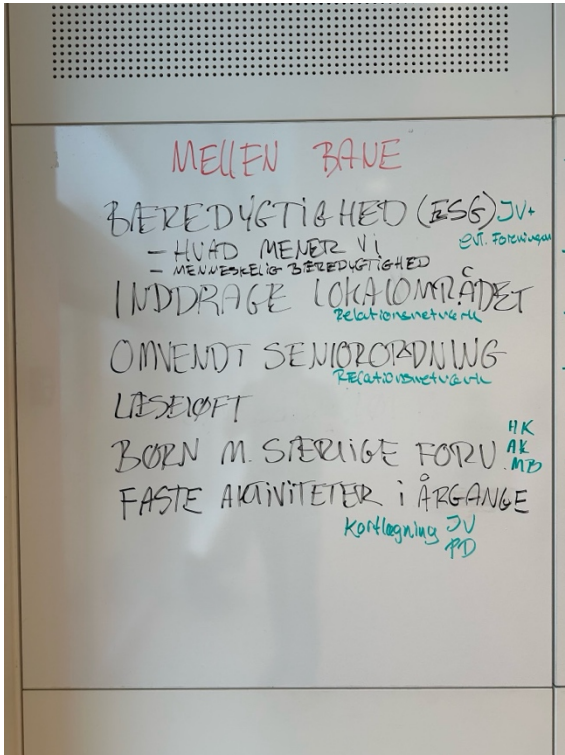 MELLEN BANE
BÆREDYGTIGHED (ESG) JV+
evt. Foreningen
- HVAD MENER VI
- MENNESKELIG BÆREDYGTIGHED
INDDRAGE LOKALOMRÅDET
Relationsnetværk
OMVENDT SENIORORDNING
RELationsnetværk
LÆSELØFT
HK
BØRN M. SÆRLIGE FORU. AK
MB
FASTE AKTIVITETER i ÅRGANGE
Kortlægning JV
PD